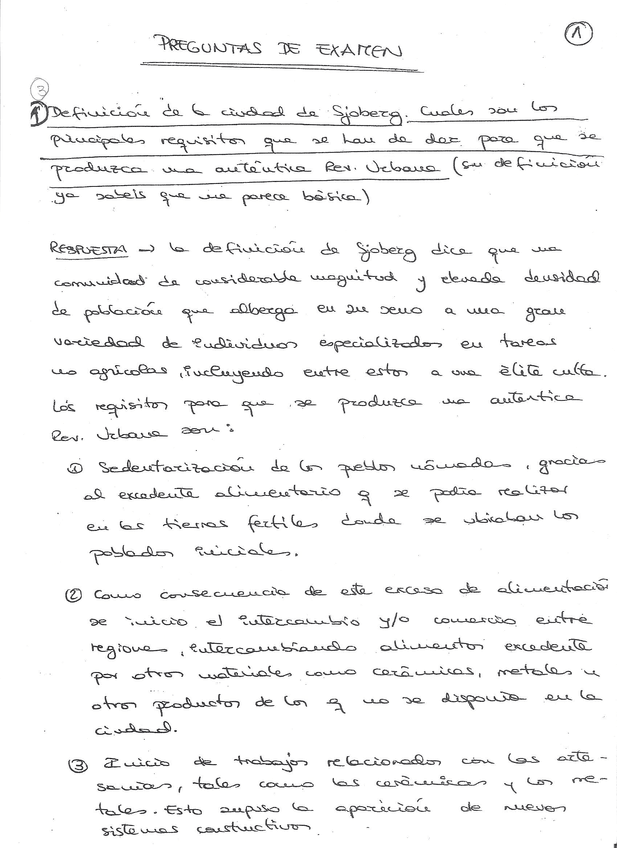 1
PREGUNTAS DE EXAMEN
3
1) Definición de la ciudad de Sjoberg. Cuales son los
principales requisitos que se han de dar para que se
produzca una auténtica Rev. Urbana (su definición
ya sabeis que me parece básica)
RESPUESTA → la definición de Sjoberg dice que una
comunidad de considerable magnitud y elevada densidad
de población que alberga en su seno a una gran
variedad de individuos especializados en tareas
no agrícolas, incluyendo entre estos a una élite culta.
Los requisitos para que se produzca una autentica
Rev. Urbana son:
① Sedentarización de los pueblos nómadas, gracias
al excedente alimentario q se podía realizar
en las tierras fertiles donde se ubicaban los
poblados iniciales.
② Como consecuencia de este exceso de alimentación
se inicio el intercambio y/o comercio entre
regiones, intercambiando alimentos excedente
por otros materiales como cerámicas, metales u
otros productos de los q no se disponia en la
ciudad.
③ Inicio de trabajos relacionados con las arte-
sanias, tales como las cerámicas y los me-
tales. Esto supuso la aparición de nuevos
sistemas constructivos.